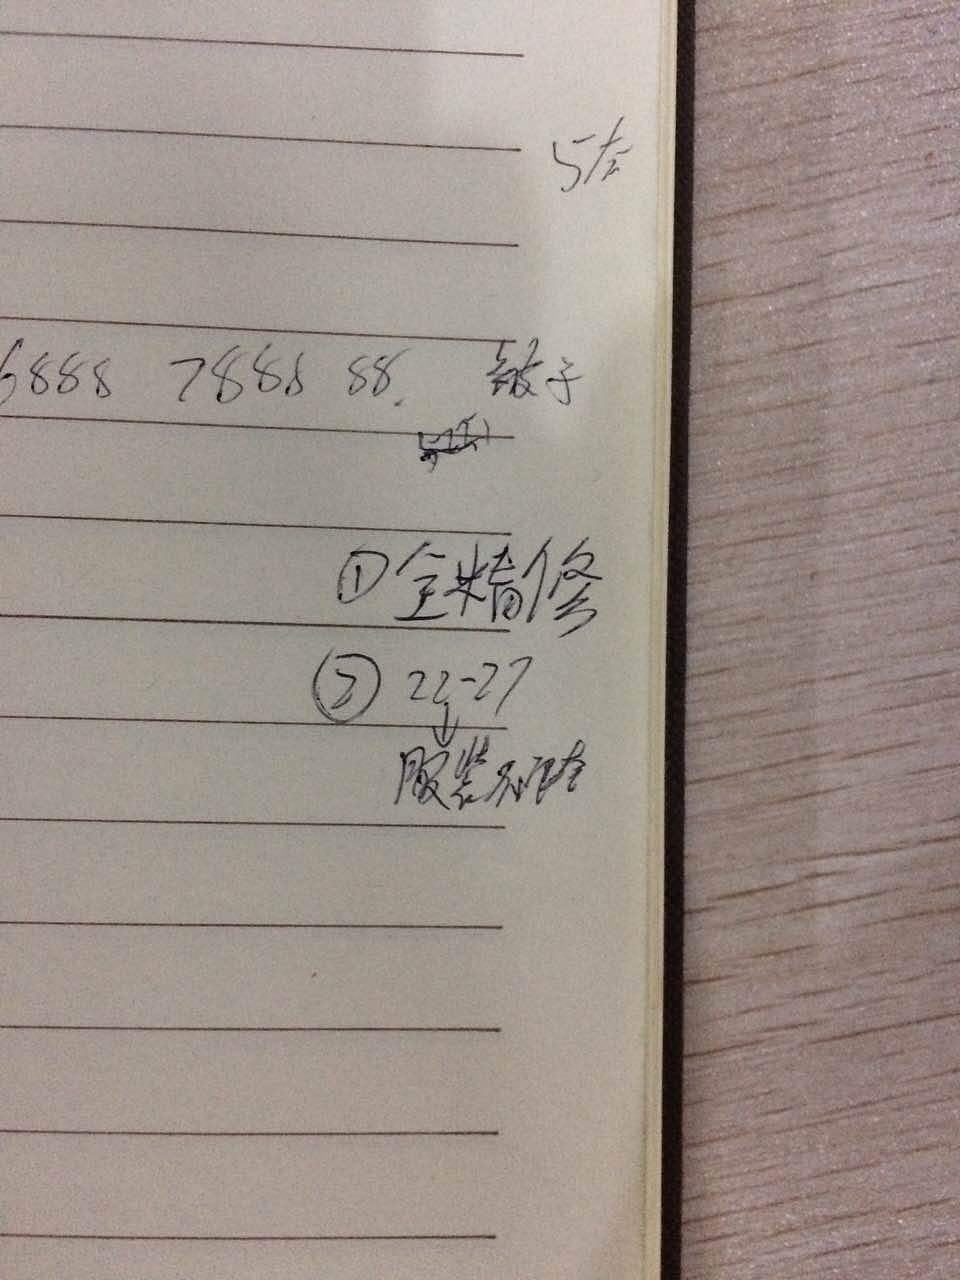 5左
6888 7888 88. 被子
①全精修
②22-27
↓
服装